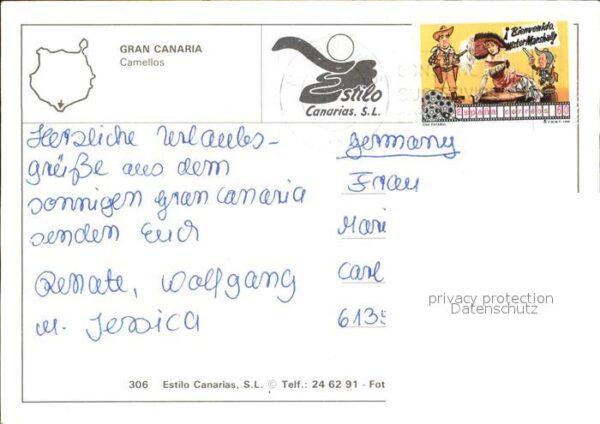 GRAN CANARIA
Camellos
Estilo
Canarias, S.L.
¡Bienvenido,
míster Marshall!
España correos
Herzliche Urlaubs-
grüße aus dem
sonnigen Gran Canaria
senden Euch
Renate, Wolfgang
u. Jessica
Germany
Frau
Mari
Carl
6135
privacy protection
Datenschutz
306 Estilo Canarias, S.L. © Telf.: 24 62 91 - Fot